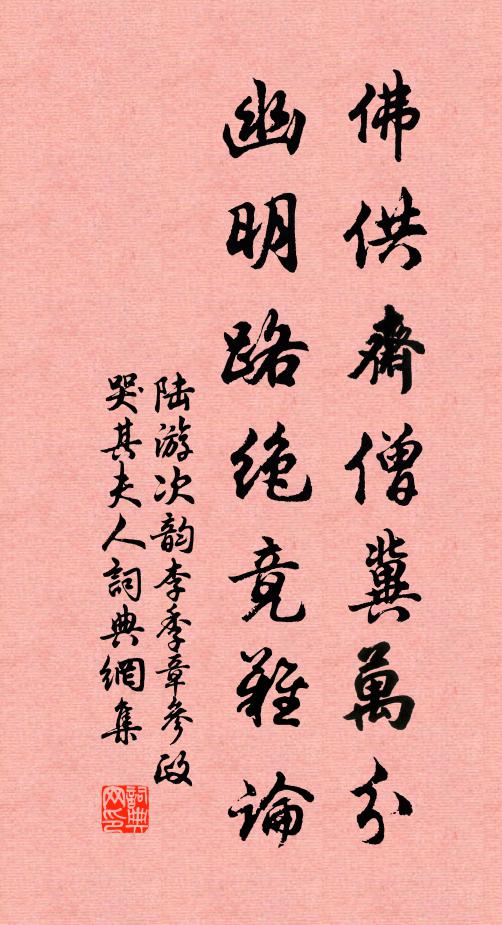 佛供齋僧冀萬分
幽明路絕竟難論
陆游次韵李季章參政
哭其夫人詞典網集
詞典
网印